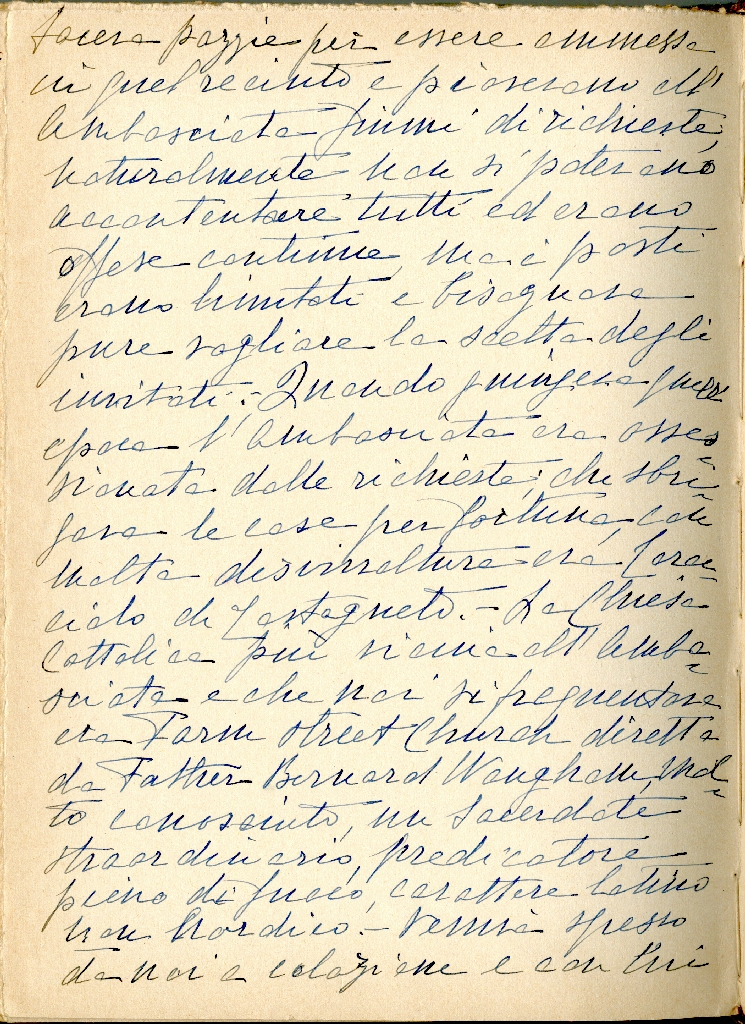 faceva pazzie per essere ammessa
in quel recinto e piovevano all'
Ambasciata fiumi di richieste,
naturalmente non si potevano
accontentare tutti ed erano
offese continue, ma i posti
erano limitati e bisognava
pure vagliare la scelta degli
invitati.- Quando giungeva quell'
epoca l'Ambasciata era osses-
sionata dalle richieste; chi sbri-
gava le cose per fortuna, con
molta disinvoltura era Carac-
ciolo di Castagneto.- La Chiesa
Cattolica più vicina all'Amba-
sciata e che noi si frequentava
era Farm Street Church diretta
da Father Bernard Vaugham, mol-
to conosciuto, un sacerdote
straordinario, predicatore
pieno di fuoco, carattere latino
non nordico.- Veniva spesso
da noi a colazione e con lui